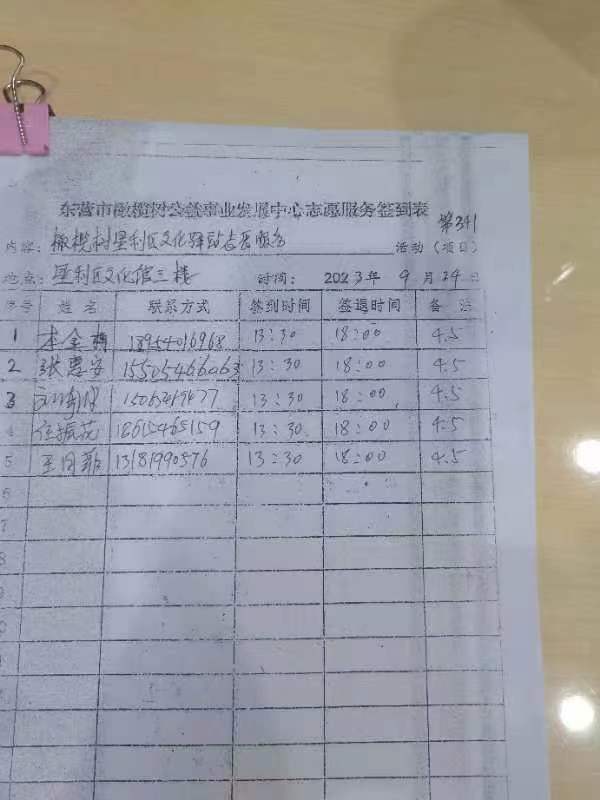 东营市橄榄树公益事业发展中心志愿服务签到表
第341
内容：橄榄树垦利区文化驿站志愿服务 活动（项目）
地点：垦利区文化馆三楼 时间：2023年9月24日
序号 姓名 联系方式 签到时间 签退时间 备注
1 18954016968 13:30 18:00 4.5
2 张惠安 13:30 18:00 4.5
3 13:30 18:00 4.5
4 任振花 18615465159 13:30 18:00 4.5
5 王 13181990576 13:30 18:00 4.5
6
7
8
9
0
1
2
3
4
5